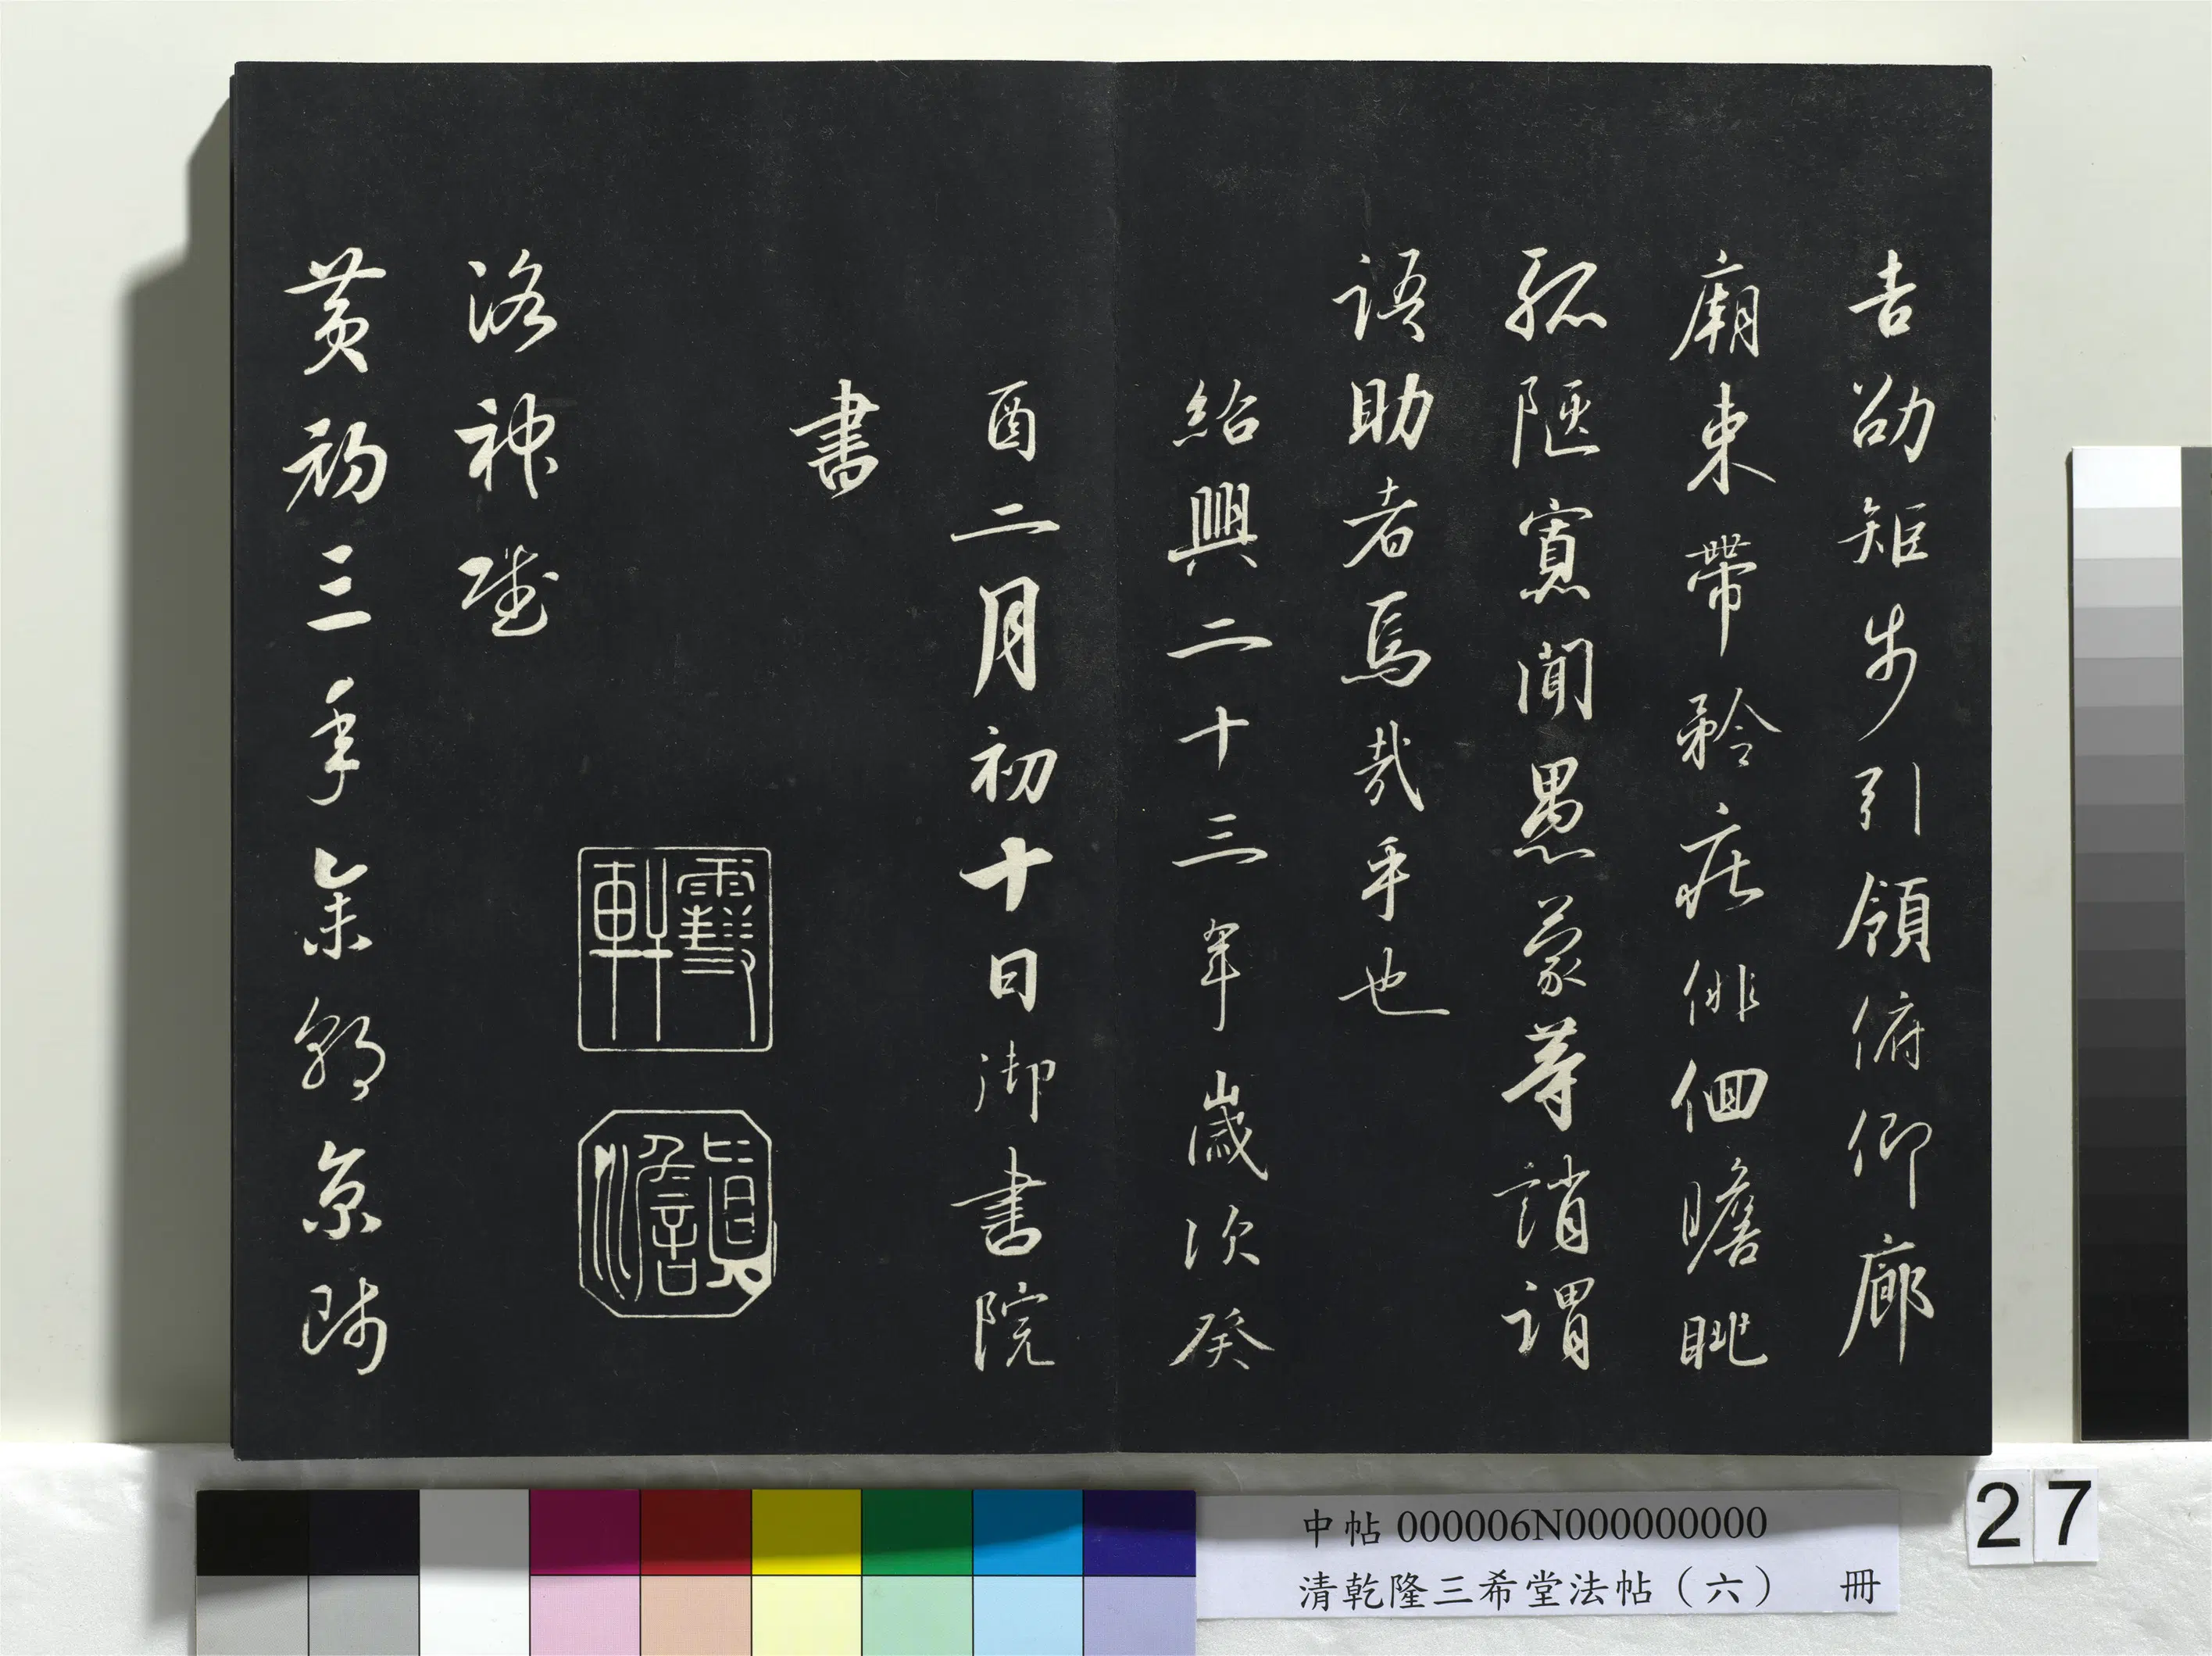 吉劭矩步引領俯仰廊
廟束帶矜莊俳佪瞻眺
孤陋寡聞愚蒙等誚謂
語助者焉哉乎也
紹興二十三年歲次癸
酉二月初十日御書院
書
雪軒
洛神賦
黃初三年余朝京師
中帖 000006N000000000
清乾隆三希堂法帖（六） 冊
27